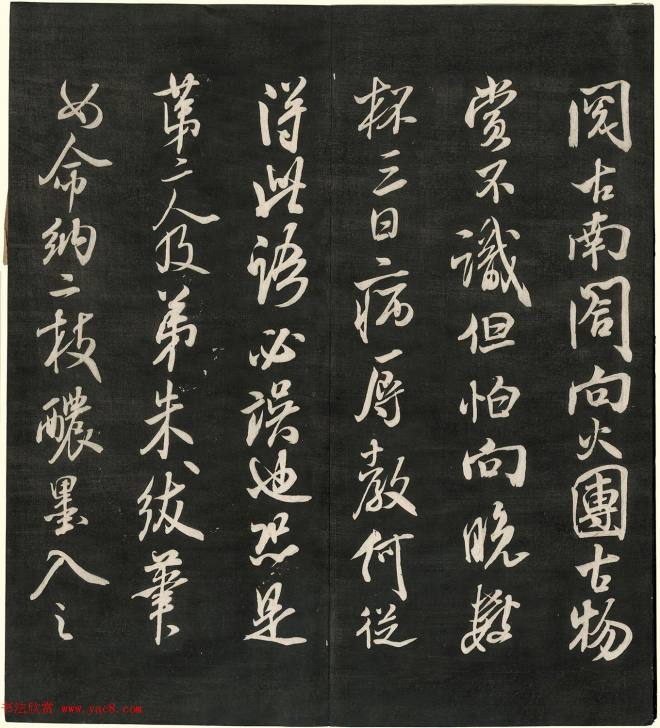 阅古南阁向火團古物
赏不識但怕向晚数
杯三日病辱教何従
得此語必誤迪恐是
苐二人及弟朱紱筆
如命納二枝醲墨入之
书法欣赏 www.yac8.com